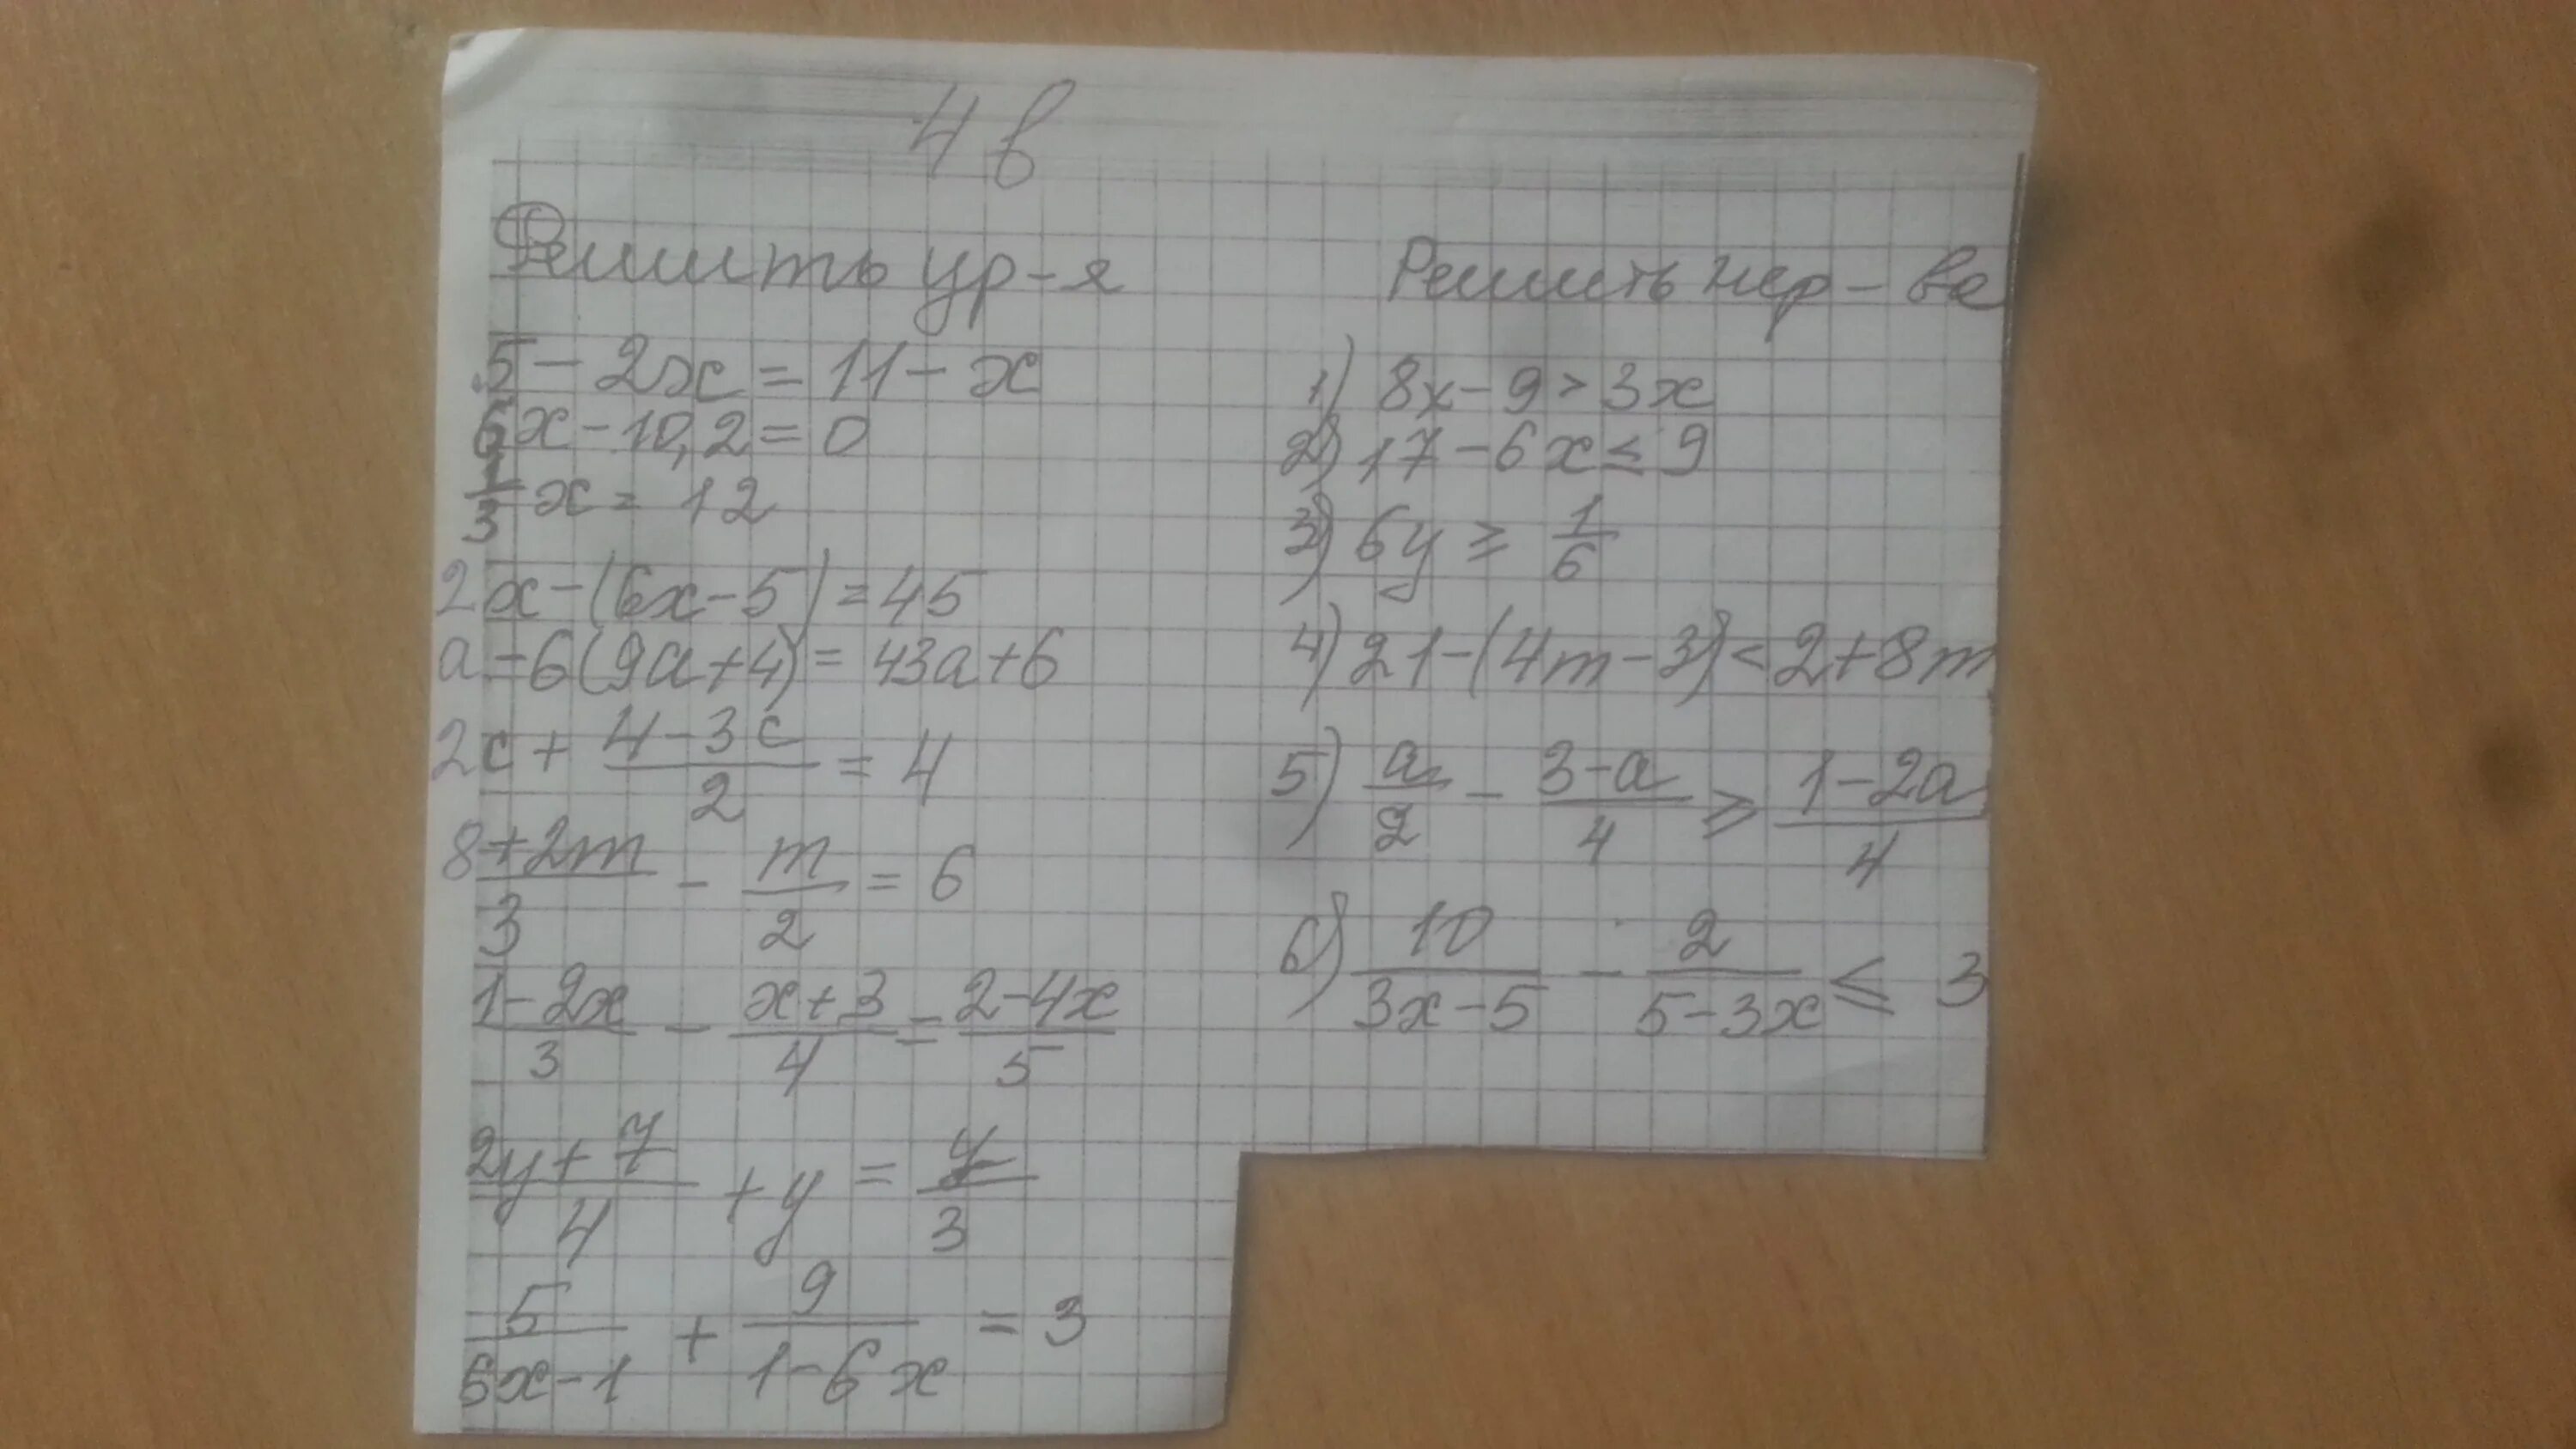 4 в
Решить ур-я
5 - 2x = 11 - x
6x - 10,2 = 0
1/3 x = 12
2x - (6x - 5) = 45
a - 6(9a + 4) = 43a + 6
2c + (4 - 3c)/2 = 4
(8 + 2m)/3 - m/2 = 6
(1 - 2x)/3 - (x + 3)/4 = (2 - 4x)/5
(2y + 7)/4 + y = y/3
5/(6x - 1) + 9/(1 - 6x) = 3
Решить нер-ва
1) 8x - 9 > 3x
2) 17 - 6x ≤ 9
3) 6y ≥ 1/6
4) 21 - (4m - 3) < 2 + 8m
5) a/2 - (3 - a)/4 ≥ (1 - 2a)/4
6) 10/(3x - 5) - 2/(5 - 3x) ≤ 3